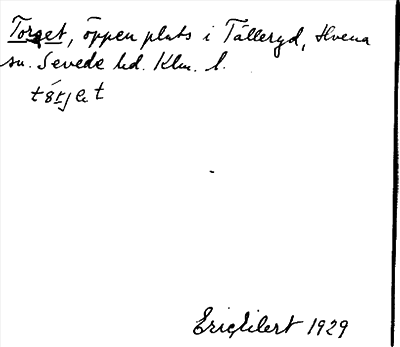 Torget, öppen plats i Tålleryd, Hvena
sn. Sevede hd. Klm. l.
Eric Eilert 1929